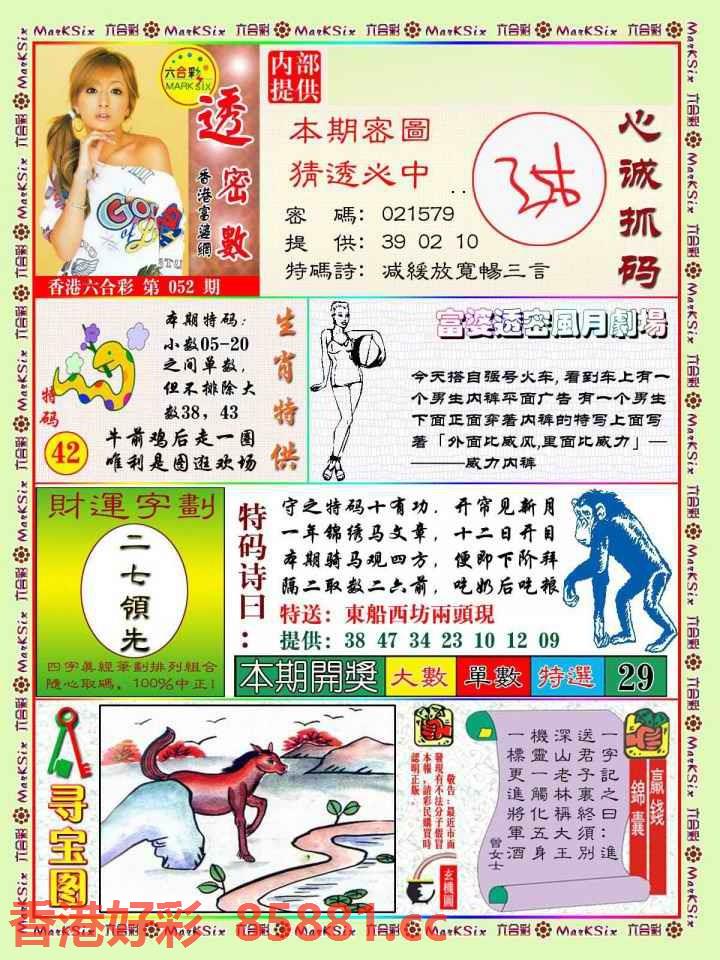 六合彩 MarkSix
六合彩
MARK SIX
透密數
香港富婆網
香港六合彩 第 052 期
内部
提供
本期密圖
猜透必中
密 碼：021579
提 供：39 02 10
特碼詩：减緩放寬暢三言
心诚抓码
特码
42
本期特码：
小数05-20
之间单数，
但不排除大
数38，43
牛前鸡后走一圈
唯利是图逛欢场
生肖特供
富婆透密風月劇場
今天搭自强号火车，看到车上有一
个男生内裤平面广告 有一个男生
下面正面穿着内裤的特写上面写
着「外面比威风，里面比威力」—
———威力内裤
財運字劃
二七領先
四字真經筆劃排列組合
隨心取碼，100%中正！
特码诗曰：
守之特码十有功，开帘见新月
一年锦绣马文章，十二日开目
本期骑马观四方，便即下阶拜
隔二取数二六前，吃奶后吃粮
特送：東船西坊兩頭現
提供：38 47 34 23 10 12 09
本期開獎 大數 單數 特選 29
寻宝图
敬告：最近市面
發現有不法分子假冒
本報，請彩民購買時
認明正版．
玄機圖
一字記之曰：進
送君子裏終須別
深山老林稱大王
機靈一觸化五身
一標更進將軍酒
曾女士
贏錢
錦囊
香港好彩 85881.cc